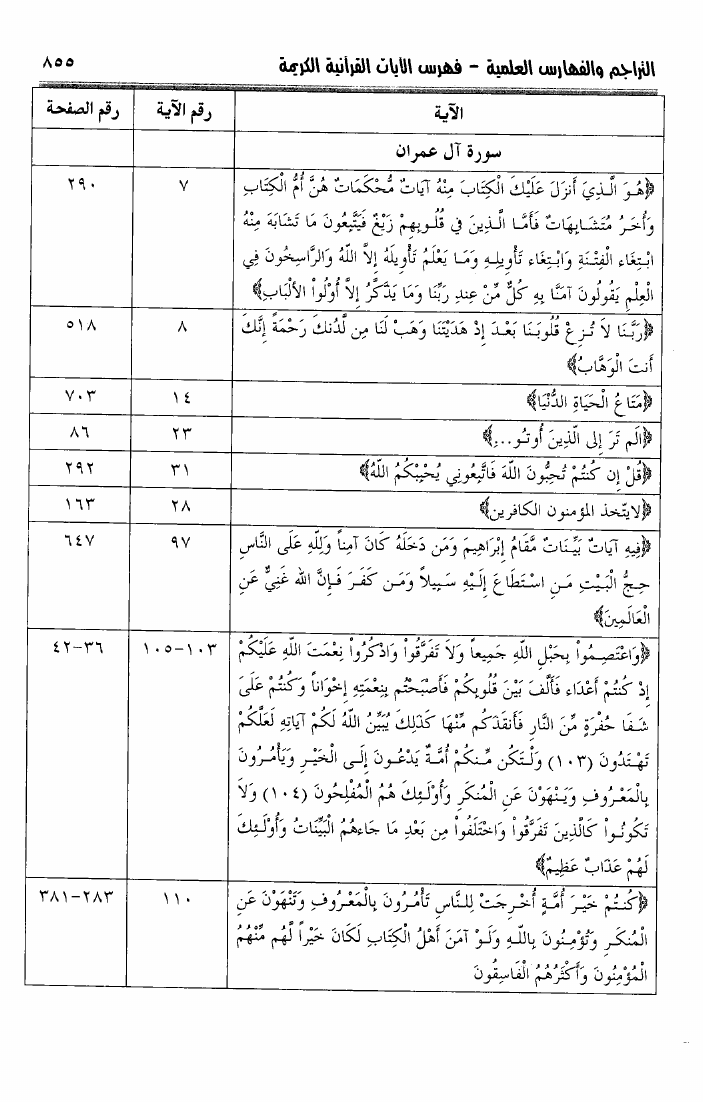 التراجم والفهارس العلمية - فهرس الآيات القرآنية الكريمة ٨٥٥
الآية رقم الآية رقم الصفحة
سورة آل عمران
﴿هُوَ الَّذِيَ أَنزَلَ عَلَيْكَ الْكِتَابَ مِنْهُ آيَاتٌ مُّحْكَمَاتٌ هُنَّ أُمُّ الْكِتَابِ ٧ ٢٩٠
وَأُخَرُ مُتَشَابِهَاتٌ فَأَمَّا الَّذِينَ في قُلُوبِهِمْ زَيْغٌ فَيَتَّبِعُونَ مَا تَشَابَهَ مِنْهُ
ابْتِغَاء الْفِتْنَةِ وَابْتِغَاء تَأْوِيلِهِ وَمَا يَعْلَمُ تَأْوِيلَهُ إِلاَّ اللّهُ وَالرَّاسِخُونَ فِي
الْعِلْمِ يَقُولُونَ آمَنَّا بِهِ كُلٌّ مِّنْ عِندِ رَبِّنَا وَمَا يَذَّكَّرُ إِلاَّ أُوْلُواْ الألْبَابِ﴾
﴿رَبَّنَا لاَ تُزِغْ قُلُوبَنَا بَعْدَ إِذْ هَدَيْتَنَا وَهَبْ لَنَا مِن لَّدُنكَ رَحْمَةً إِنَّكَ ٨ ٥١٨
أَنتَ الْوَهَّابُ﴾
﴿مَتَاعُ الْحَيَاةِ الدُّنْيَا﴾ ١٤ ٧٠٣
﴿أَلَم تَرَ إِلى الَّذِينَ أُوتُو...﴾ ٢٣ ٨٦
﴿قُلْ إِن كُنتُمْ تُحِبُّونَ اللّهَ فَاتَّبِعُونِي يُحْبِبْكُمُ اللّهُ﴾ ٣١ ٢٩٢
﴿لا يتّخذ المؤمنون الكافرين﴾ ٢٨ ١٦٣
﴿فِيهِ آيَاتٌ بَيِّنَاتٌ مَّقَامُ إِبْرَاهِيمَ وَمَن دَخَلَهُ كَانَ آمِناً وَلِلّهِ عَلَى النَّاسِ ٩٧ ٦٤٧
حِجُّ الْبَيْتِ مَنِ اسْتَطَاعَ إِلَيْهِ سَبِيلاً وَمَن كَفَرَ فَإِنَّ الله غَنِيٌّ عَنِ
الْعَالَمِينَ﴾
﴿وَاعْتَصِمُواْ بِحَبْلِ اللّهِ جَمِيعاً وَلاَ تَفَرَّقُواْ وَاذْكُرُواْ نِعْمَتَ اللّهِ عَلَيْكُمْ ١٠٣-١٠٥ ٣٦-٤٢
إِذْ كُنتُمْ أَعْدَاء فَأَلَّفَ بَيْنَ قُلُوبِكُمْ فَأَصْبَحْتُم بِنِعْمَتِهِ إِخْوَاناً وَكُنتُمْ عَلَىَ
شَفَا حُفْرَةٍ مِّنَ النَّارِ فَأَنقَذَكُم مِّنْهَا كَذَلِكَ يُبَيِّنُ اللّهُ لَكُمْ آيَاتِهِ لَعَلَّكُمْ
تَهْتَدُونَ (١٠٣) وَلْتَكُن مِّنكُمْ أُمَّةٌ يَدْعُونَ إِلَى الْخَيْرِ وَيَأْمُرُونَ
بِالْمَعْرُوفِ وَيَنْهَوْنَ عَنِ الْمُنكَرِ وَأُوْلَئِكَ هُمُ الْمُفْلِحُونَ (١٠٤) وَلاَ
تَكُونُواْ كَالَّذِينَ تَفَرَّقُواْ وَاخْتَلَفُواْ مِن بَعْدِ مَا جَاءهُمُ الْبَيِّنَاتُ وَأُوْلَئِكَ
لَهُمْ عَذَابٌ عَظِيمٌ﴾
﴿كُنتُمْ خَيْرَ أُمَّةٍ أُخْرِجَتْ لِلنَّاسِ تَأْمُرُونَ بِالْمَعْرُوفِ وَتَنْهَوْنَ عَنِ ١١٠ ٢٨٣-٣٨١
الْمُنكَرِ وَتُؤْمِنُونَ بِاللّهِ وَلَوْ آمَنَ أَهْلُ الْكِتَابِ لَكَانَ خَيْراً لَّهُم مِّنْهُمُ
الْمُؤْمِنُونَ وَأَكْثَرُهُمُ الْفَاسِقُونَ